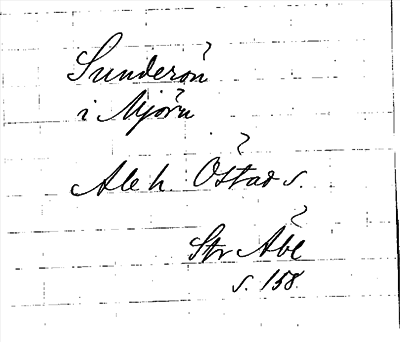 Sunderön
i Mjörn
Ale h. Östad s.
Str Åbl
s. 158